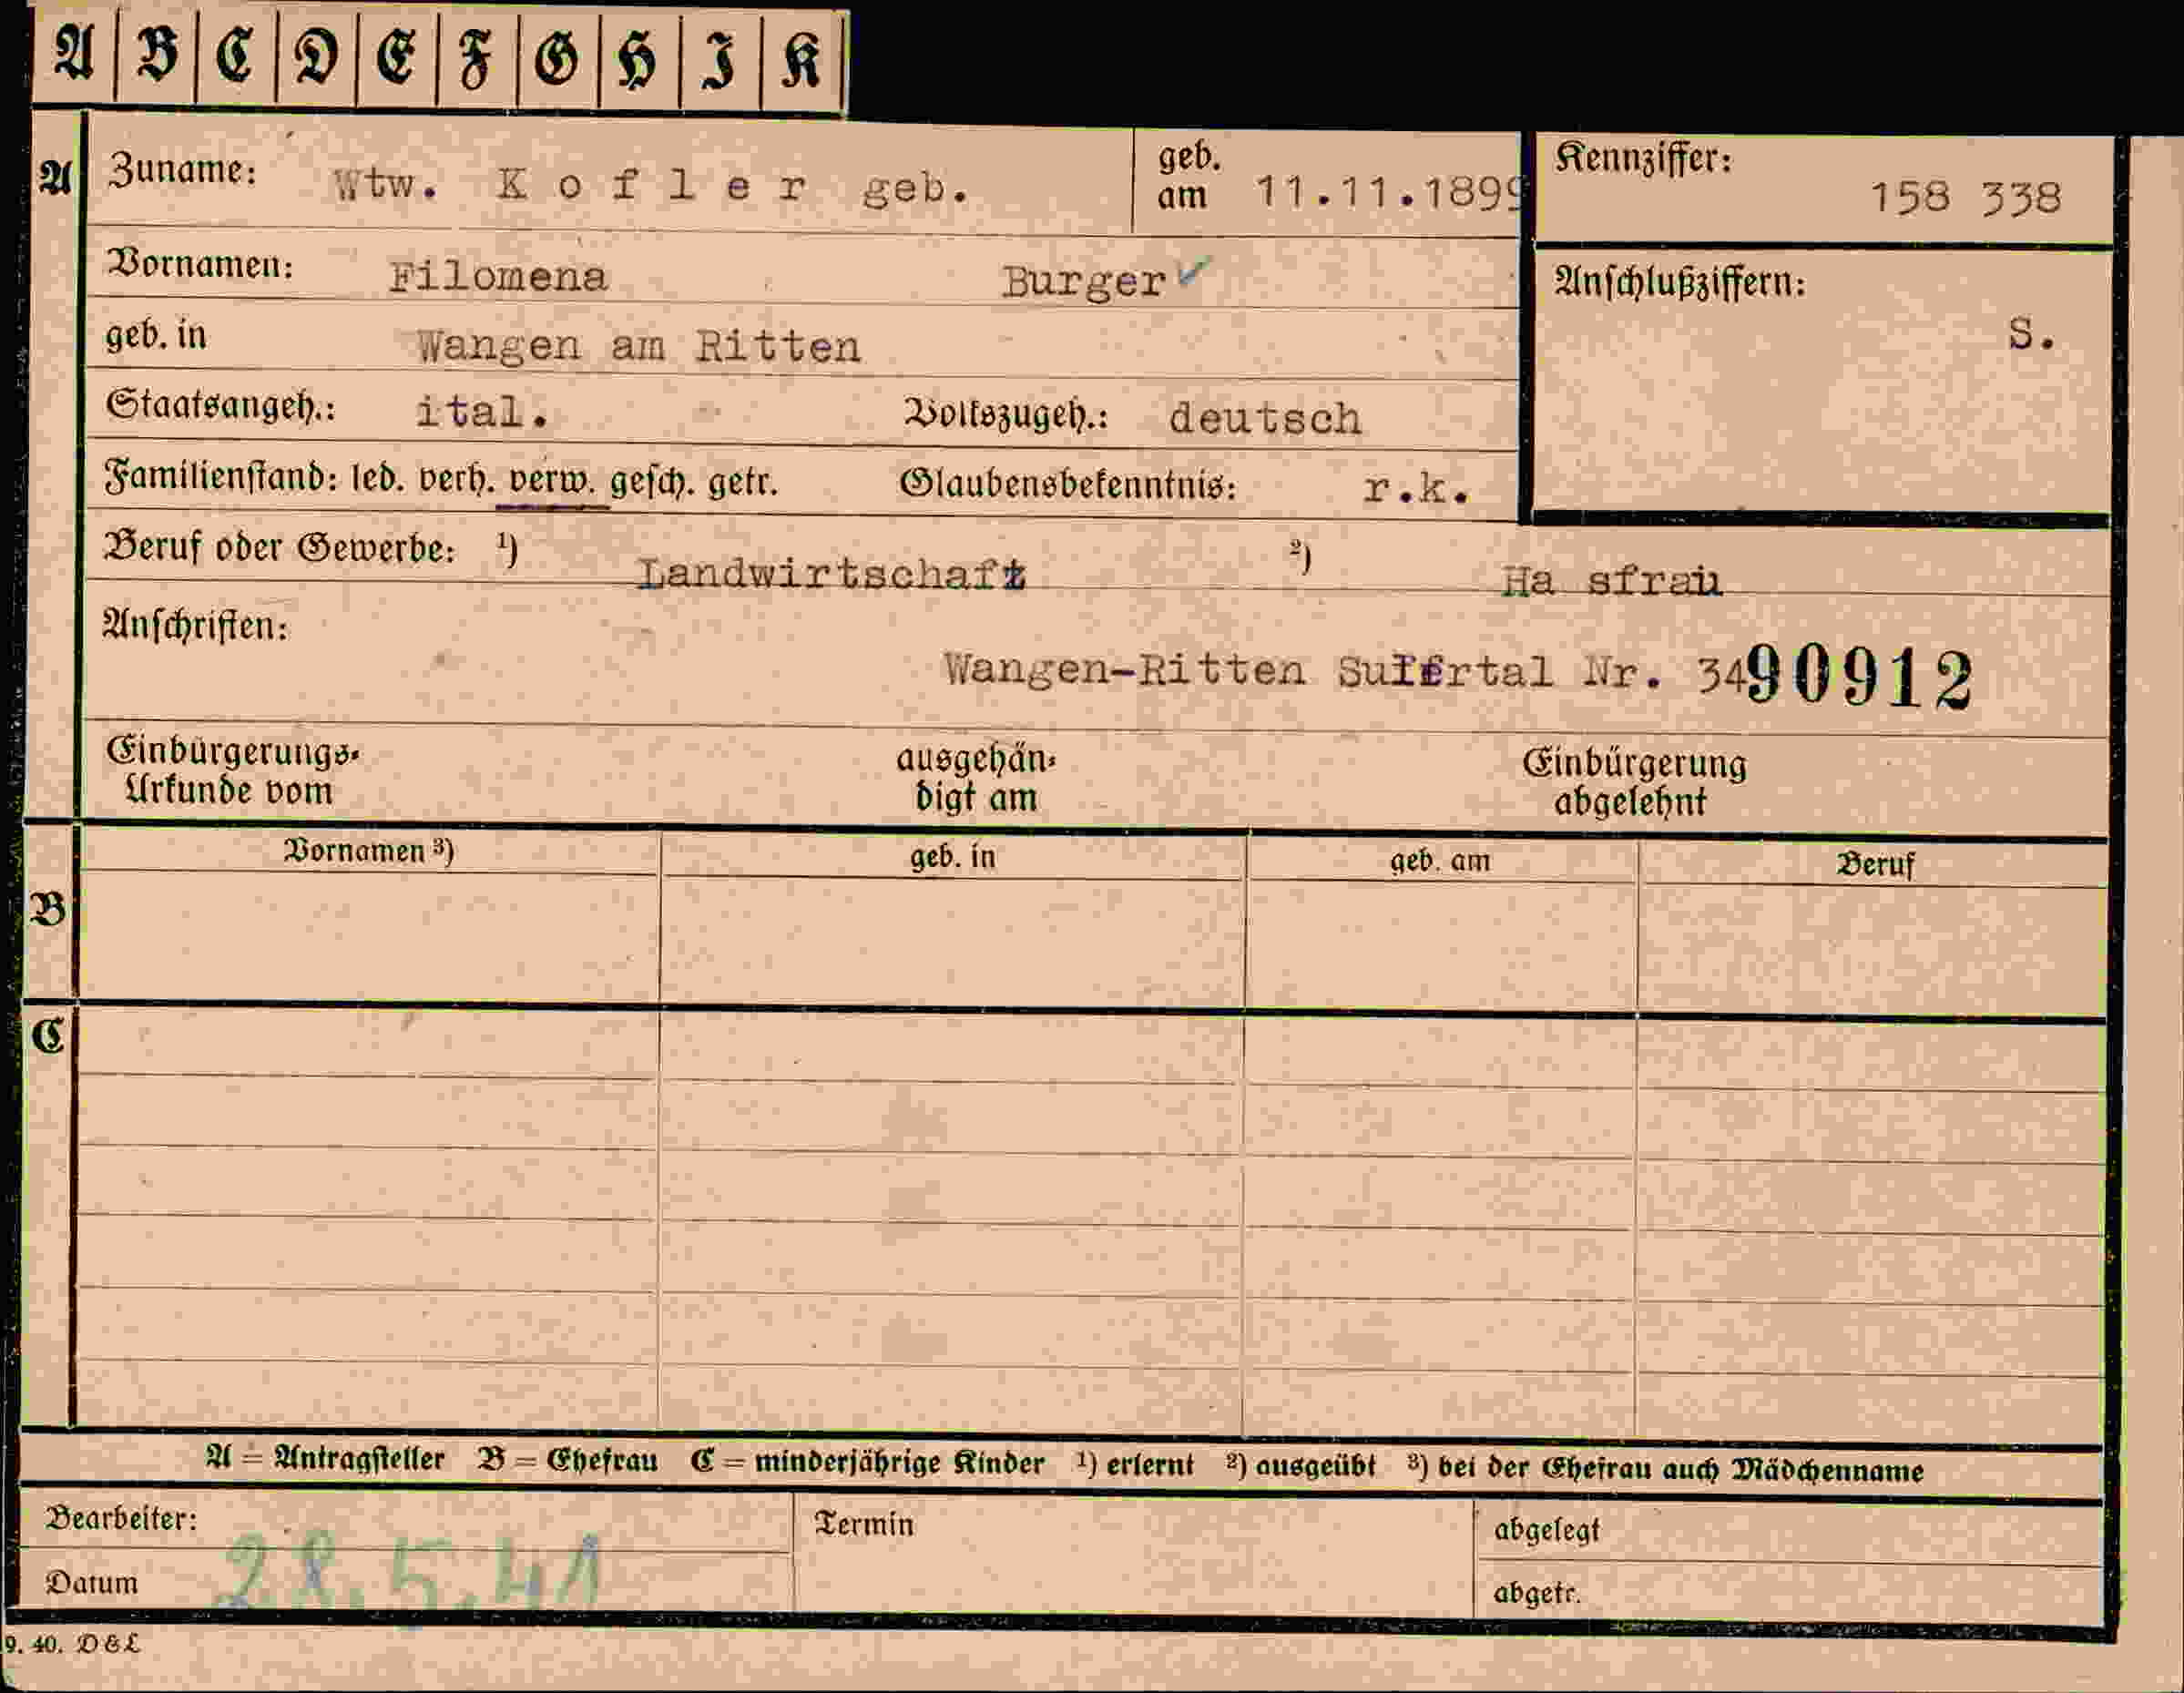 A B C D E F G H I K
A Zuname: Wtw. Kofler geb. geb. am 11.11.1899 Kennziffer: 158 338
Vornamen: Filomena Burger ✓ Anschlußziffern:
geb. in Wangen am Ritten S.
Staatsangeh.: ital. Volkszugeh.: deutsch
Familienstand: led. verh. verw. gesch. getr. Glaubensbekenntnis: r.k.
Beruf oder Gewerbe: ¹) Landwirtschaft ²) Ha sfrau
Anschriften:
Wangen-Ritten Nr. 34 90912
Einbürgerungs- ausgehän- Einbürgerung
Urkunde vom digt am abgelehnt
Vornamen ³) geb. in geb. am Beruf
B
C
A = Antragsteller B = Ehefrau C = minderjährige Kinder ¹) erlernt ²) ausgeübt ³) bei der Ehefrau auch Mädchenname
Bearbeiter: Termin abgelegt
Datum 28.5.41 abgetr.
9. 40. D & L